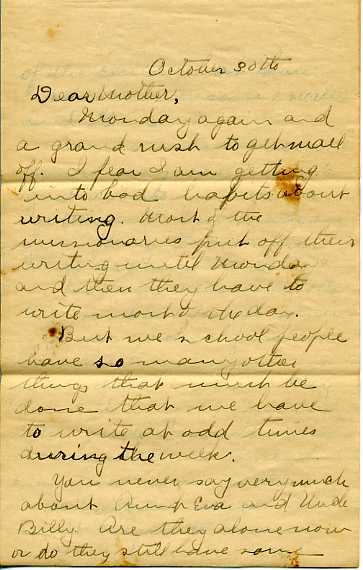 October 30th
Dear Mother,
Monday again and
a grand rush to get mail
off. I fear I am getting
into bad habits about
writing. Most of the
missionaries put off their
writing until Monday
and then they have to
write most of the day.
But we school people
have so many other
things that must be
done that we have
to write at odd times
during the week.
You never say very much
about Aunt Eva and Uncle
Billy. Are they alone now
or do they still have some